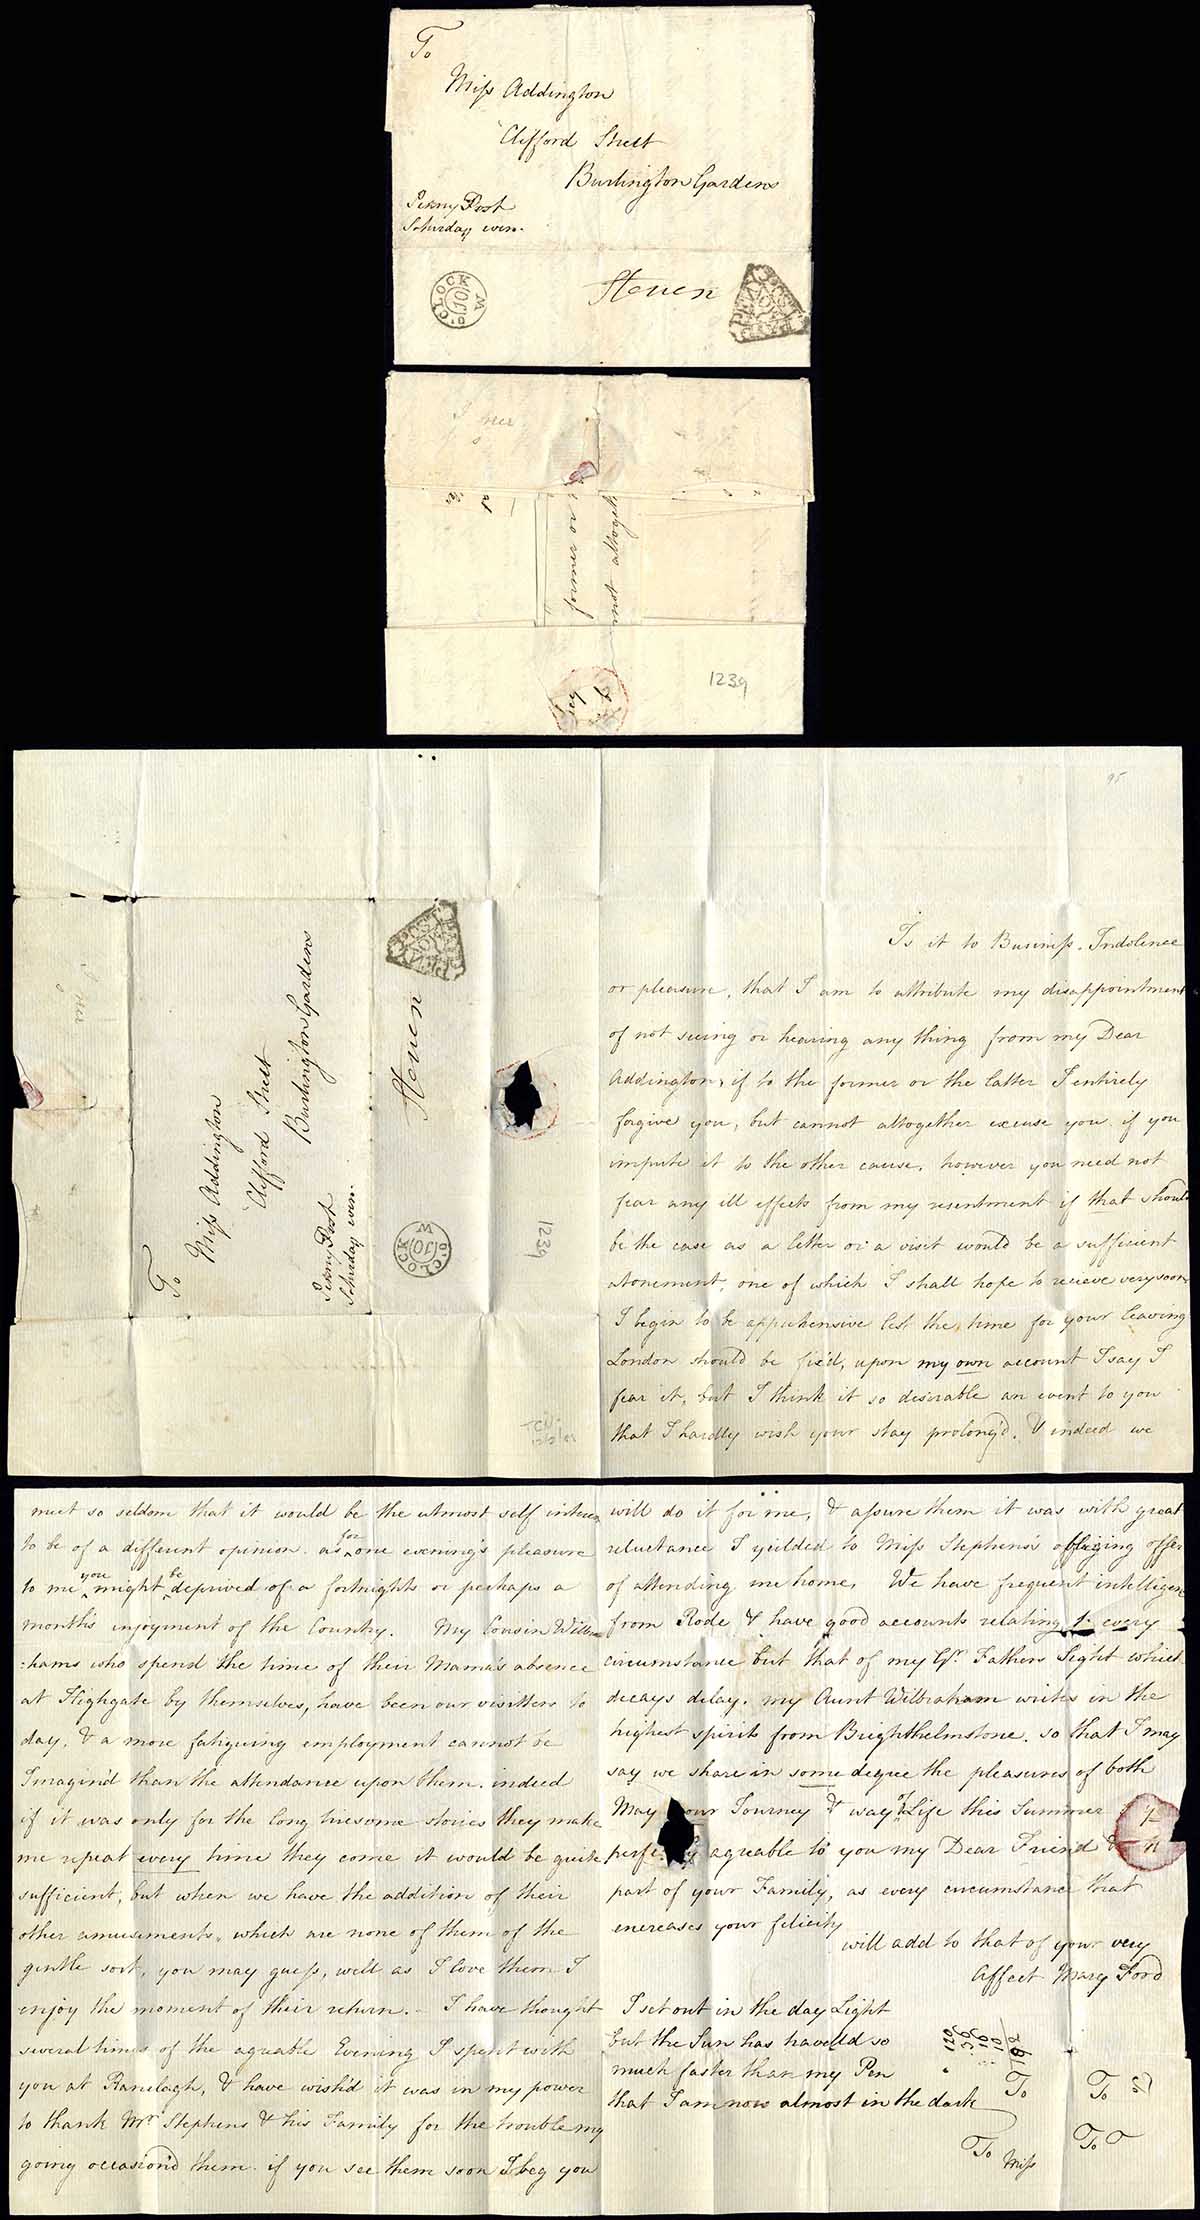 To
Miss Addington
Clifford Street
Burlington Gardens
Penny Post
Saturday even.
Steven
O'CLOCK
10
W
PENY POST PAYD
former or
not altoget
1239
95
To
Miss Addington
Clifford Street
Burlington Gardens
Penny Post
Saturday even.
Steven
O'CLOCK
10
W
PENY POST PAYD
1239
Is it to Business, Indolence
or pleasure, that I am to attribute my disappointment
of not seeing or hearing any thing from my Dear
Addington, if to the former or the latter I entirely
forgive you, but cannot altogether excuse you if you
impute it to the other cause, however you need not
fear any ill effects from my resentment if that should
be the case as a letter or a visit would be a sufficient
atonement, one of which I shall hope to recieve very soon,
I begin to be apprehensive lest the time for your leaving
London should be fix'd, upon my own account I say I
fear it, but I think it so desirable an event to you
that I hardly wish your stay prolong'd. & indeed we
meet so seldom that it would be the utmost self interes
to be of a different opinion. as for one evening's pleasure
to me you might be deprived of a fortnights or perhaps a
month's enjoyment of the Country. My Cousin Wilbra
:hams who spend the time of their Mama's absence
at Highgate by themselves, have been our visitters to
day, & a more fatiguing employment cannot be
Imagin'd than the attendance upon them. indeed
if it was only for the long tiresome stories they make
me repeat every time they come it would be quite
sufficient, but when we have the addition of their
other amusements, which are none of them of the
gentle sort, you may guess, well as I love them I
enjoy the moment of their return. - I have thought
several times of the agreable Evening I spent with
you at Ranelagh, & have wish'd it was in my power
to thank Mr Stephens & his Family for the trouble my
going occasion'd them. if you see them soon I beg you
will do it for me, & assure them it was with great
reluctance I yeilded to Miss Stephens's obliging offer
of attending me home. We have frequent intelligen
from Rode & have good accounts relating to every
circumstance but that of my Gr. Fathers Sight which
decays dclay. my Aunt Wilbraham writes in the
highest spirits from Brighthelmstone. so that I may
say we share in some degree the pleasures of both
May your Journey & way of Life this Summer
agreable to you my Dear Friend &
part of your Family, as every circumstance that
encreases your felicity
will add to that of your very
Affect Mary Ford
I set out in the day Light
but the Sun has travelld so
much faster than my Pen
that I am now almost in the dark
To
To
To
Miss
To